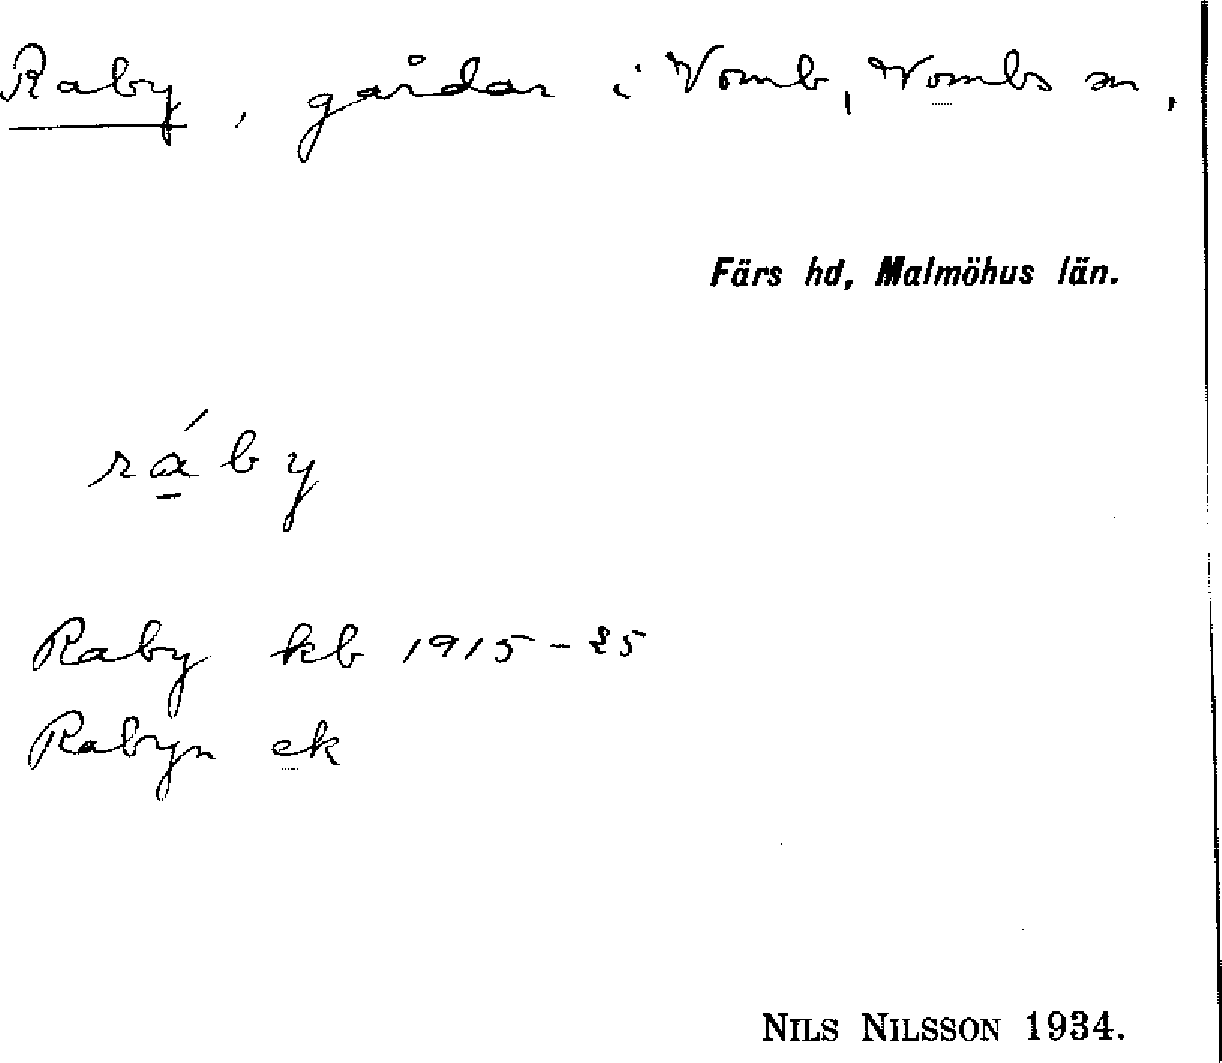 Raby, gårdar i Vomb, Vombs sn,
Färs hd, Malmöhus län.
rá̱by
Raby kb 1915-25
Rabyn ek
NILS NILSSON 1934.